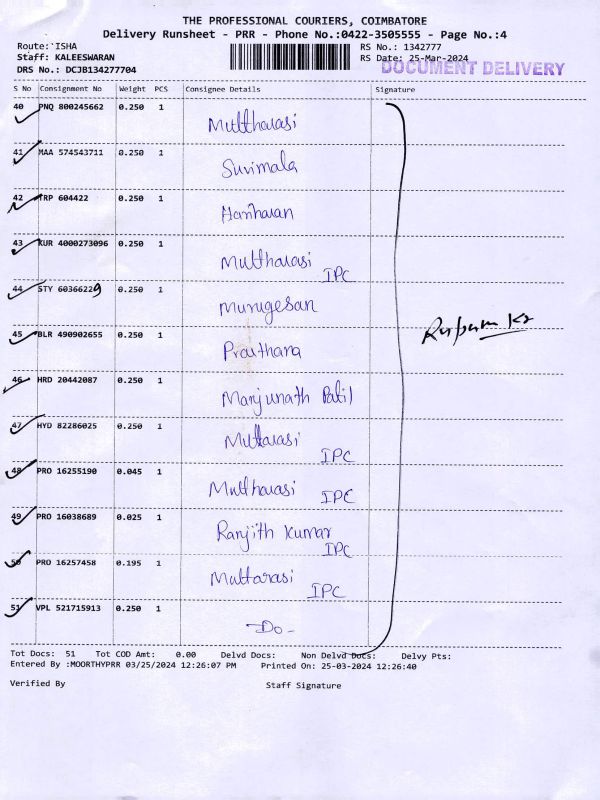 THE PROFESSIONAL COURIERS, COIMBATORE
Delivery Runsheet - PRR - Phone No.:0422-3505555 - Page No.:4
Route: ISHA
RS No.: 1342777
Staff: KALEESWARAN
RS Date: 25-Mar-2024
DRS No.: DCJB134277704
DOCUMENT DELIVERY
S No Consignment No Weight PCS Consignee Details Signature
40 PNQ 800245662 0.250 1 Muttharasi
41 MAA 574543711 0.250 1 Suvimala
42 TRP 604422 0.250 1 Hariharan
43 KUR 4000273096 0.250 1 Muttharasi
IPC
44 STY 60366229 0.250 1 Murugesan
45 BLR 490902655 0.250 1 Prarthana
46 HRD 20442087 0.250 1 Manjunath Patil
47 HYD 82286025 0.250 1 Muttarasi
IPC
48 PRO 16255190 0.045 1 Mutharasi
IPC
49 PRO 16038689 0.025 1 Ranjith Kumar
IPC
50 PRO 16257458 0.195 1 Muttarasi
IPC
51 VPL 521715913 0.250 1 -Do-
Tot Docs: 51 Tot COD Amt: 0.00 Delvd Docs: Non Delvd Docs: Delvy Pts:
Entered By :MOORTHYPRR 03/25/2024 12:26:07 PM Printed On: 25-03-2024 12:26:40
Verified By Staff Signature